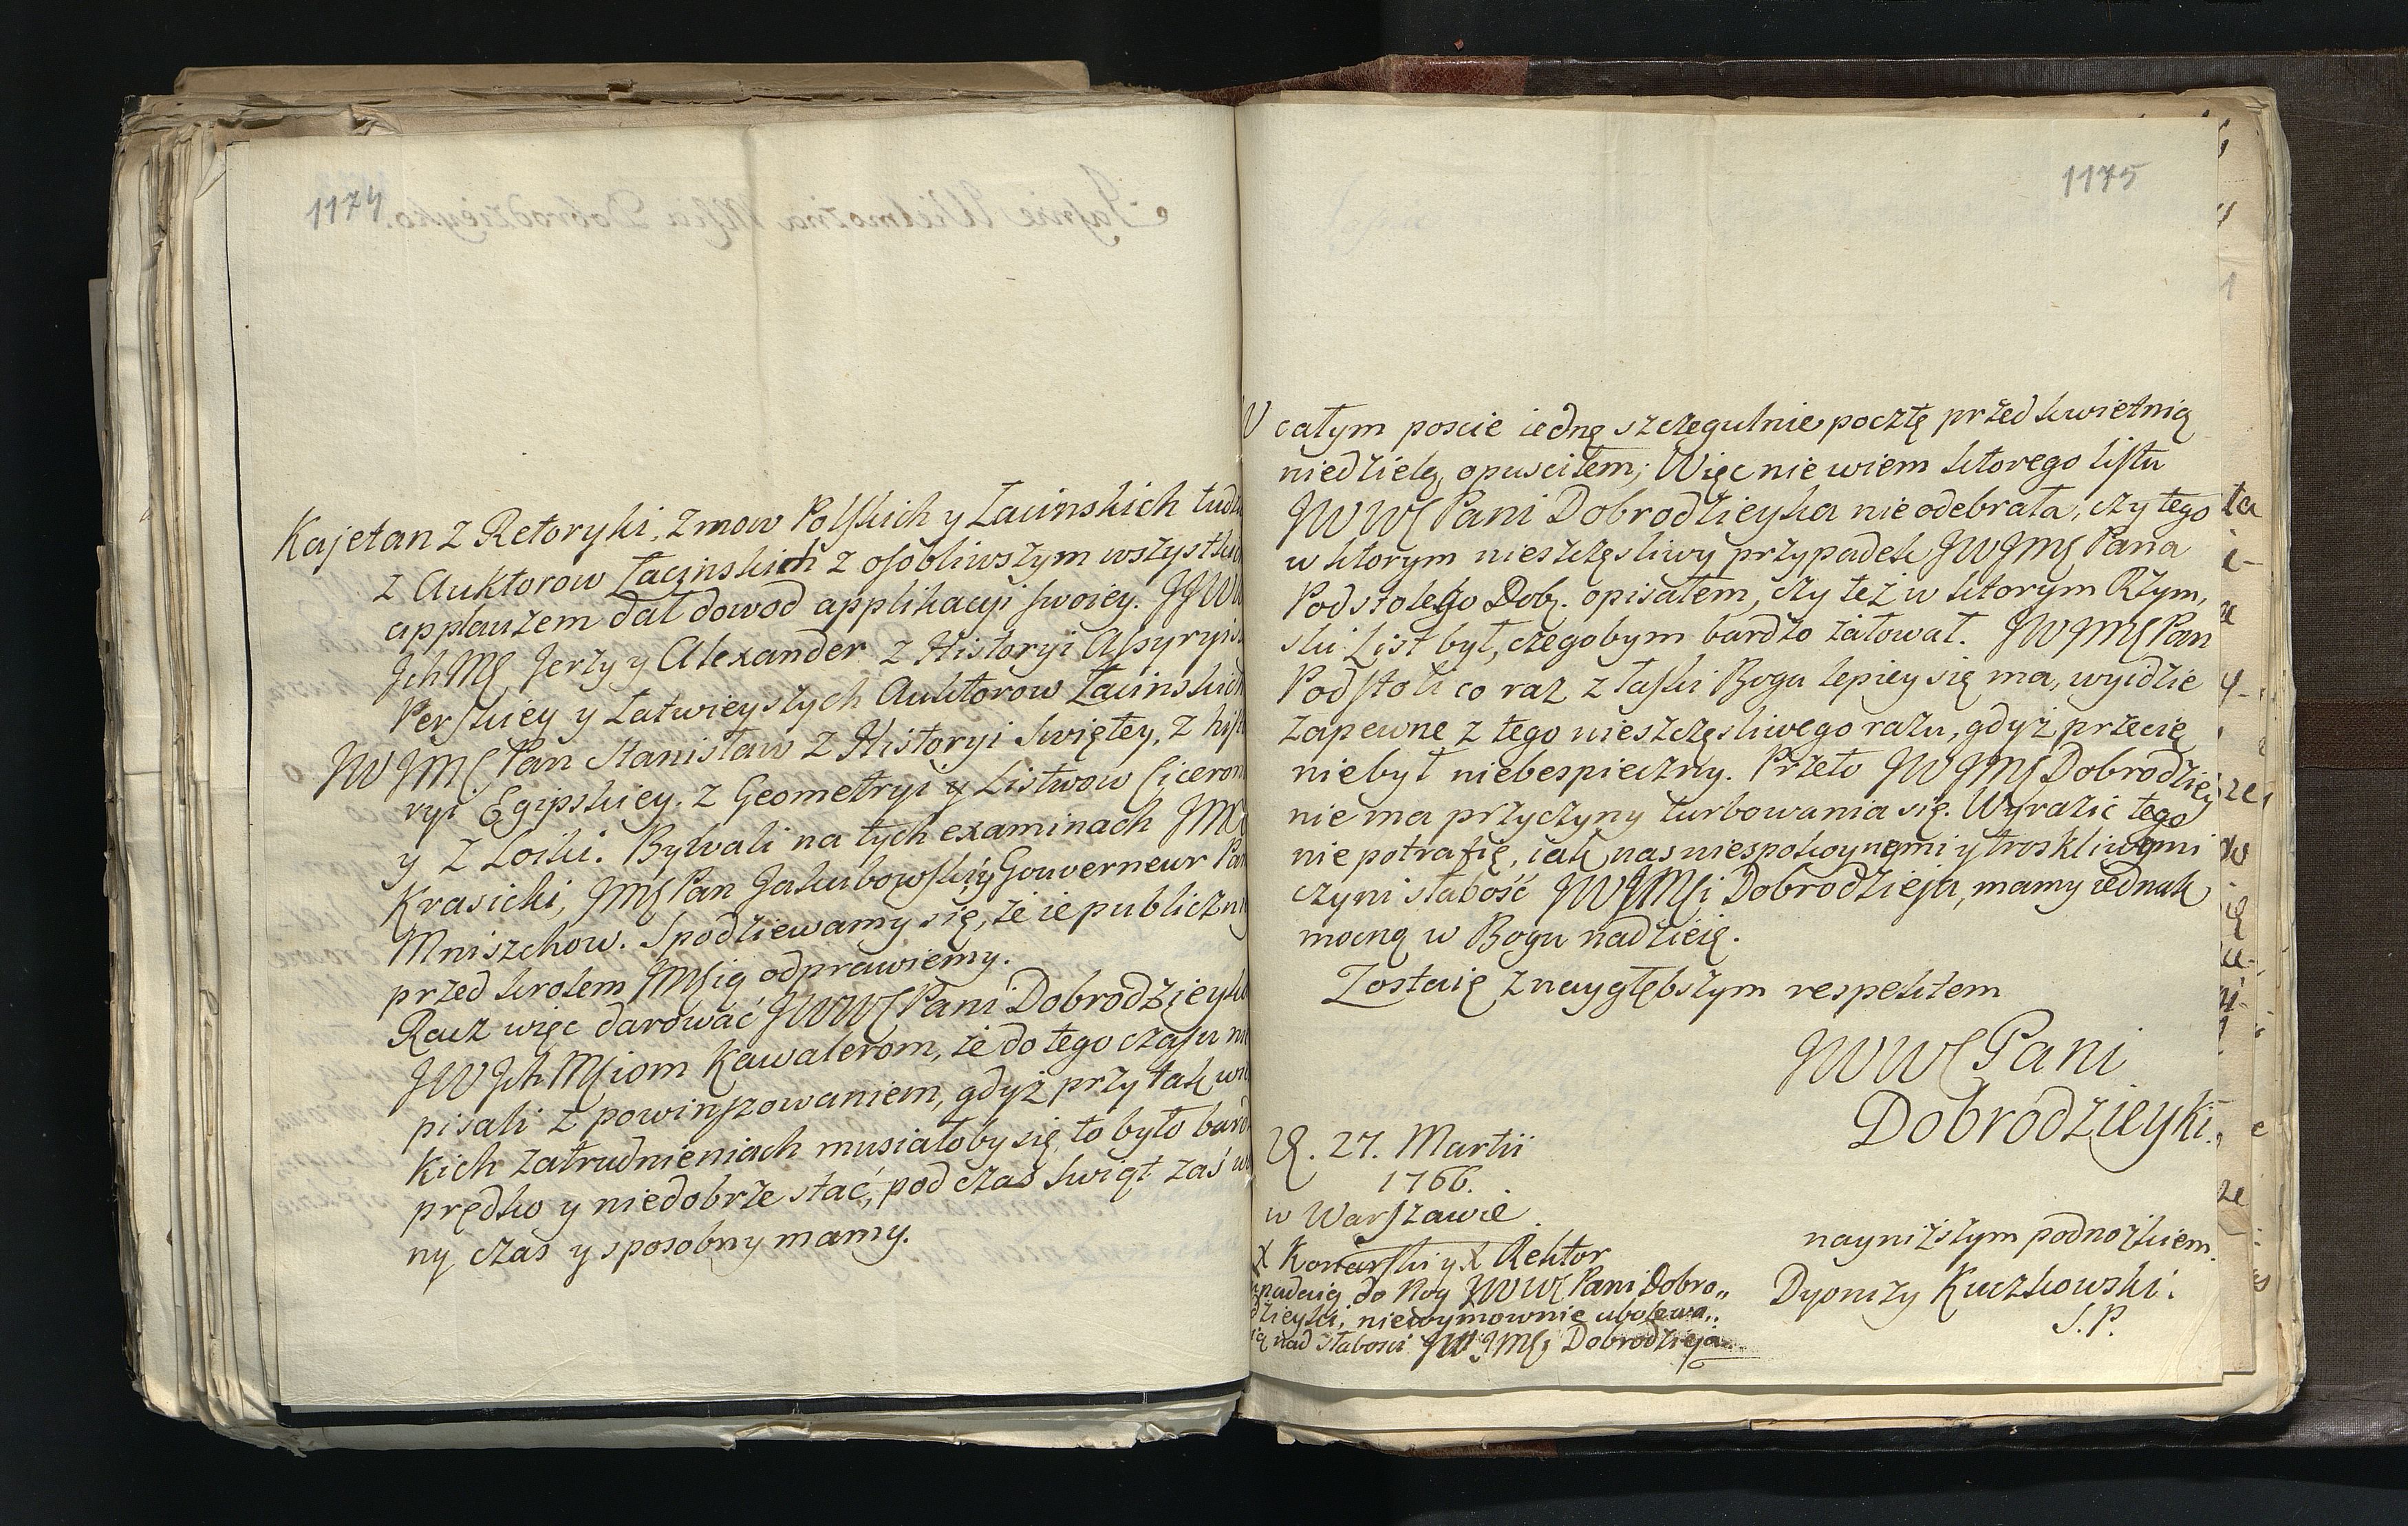 1174
Kajetan z Retoryki, z mow Polskich y Łacinskich tudz
z Auktorow Łacinskich z osobliwszym wszystk
applauzem dał dowod applikacyi swoiey. JJW
Jch Mć Jerzy y Alexander z Historyi Assyryis
Perskiey y łatwieyszych Auktorow Łacinskich
JW JMć Pan Stanisław z Historyi Swiętey, z hist
ryi Egipskiey. z Geometryi y Listwow Ciceron
y z Loiki. Bywali na tych examinach JMć
Krasicki, JMć Pan Jakubowski, y Gouverneur Pan
Mniszchow. Spodziewamy się, że ie publiczn
przed krolem JMścią odprawiemy.
Racz więc darować JWWć Pani Dobrodzieyk
JW Jch Mściom Kawalerom, że do tego czasu ni
pisali z powinszowaniem, gdyż przy tak wi
kich zatrudnieniach musiałoby się to było bard
prędko y niedobrze stać, pod czas swiąt zaś w
ny czas y sposobny mamy.
1175
W całym poscie iednę szczegulnie pocztę przed kwietnią
niedzielą, opusciłem; Więc nie wiem ktorego listu
JWWć Pani Dobrodzieyka nie odebrała, czy tego
w ktorym nieszczęsliwy przypadek JWJMć Pana
Podstolego Dob. opisałem, czy też w ktorym Rzym,
ski List był, czegobym bardzo żałował. JWJMć Pan
Podstoli co raz z łaski Boga lepiey się ma, wyidzie
zapewne z tego nieszczęsliwego razu, gdyż przecię
niebył niebespieczny. Przeto JWJMć Dobrodziey
nie ma przyczyny turbowania się. Wyrazić tego
nie potrafię, iak nas niespokoynemi y troskliwemi
czyni słabość JWJMći Dobrodzieja, mamy iednak
mocną w Bogu nadzieię.
Zostaię z naygłębszym respektem
JWWć Pani
Dobrodzieyki.
D. 27. Martii
1766.
w Warszawie.
nayniższym podnożkiem.
Dyonizy Kuczkowski.
S. P.
X Konarski y X Rektor
upadaią do Nog JWWć Pani Dobro„
dzieyki, niewymownie ubolewa„
ią nad słabości JWJMći Dobrodzieja.